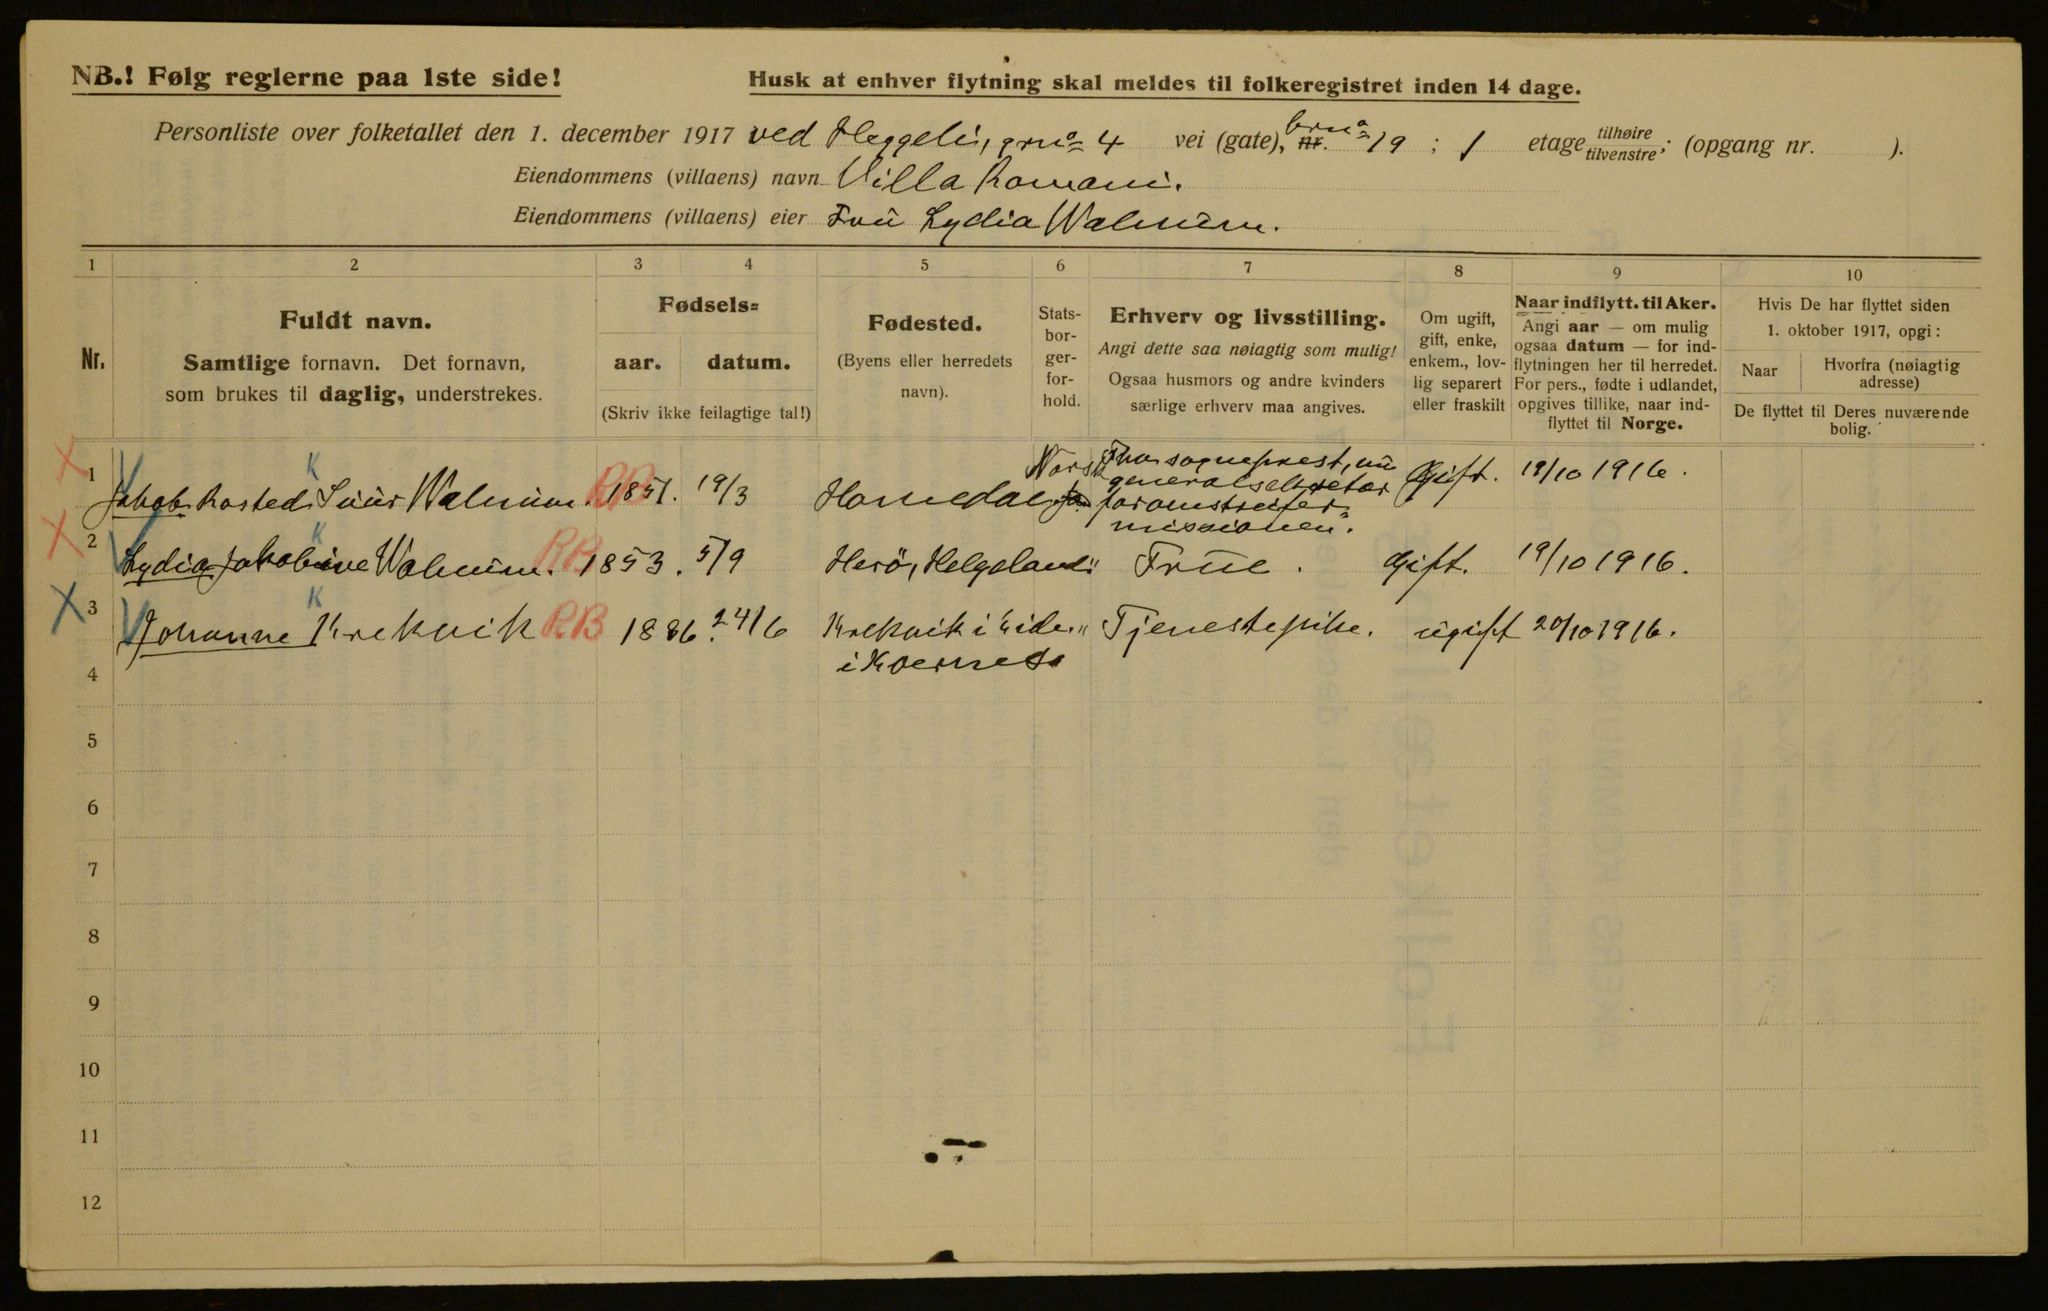 NB.! Følg reglerne paa 1ste side!
Husk at enhver flytning skal meldes til folkeregistret inden 14 dage.
Personliste over folketallet den 1. december 1917 ved Heggeli, grno 4 vei (gate), nr. brno 19 ; 1 etage tilhøire tilvenstre; (opgang nr. ).
Eiendommens (villaens) navn Villa Romani.
Eiendommens (villaens) eier Fru Lydia Walnum.
1 2 3 4 5 6 7 8 9 10
Nr.
Fuldt navn.
Samtlige fornavn. Det fornavn,
som brukes til daglig, understrekes.
Fødsels=
aar. datum.
(Skriv ikke feilagtige tal!)
Fødested.
(Byens eller herredets
navn).
Stats-
bor-
ger-
for-
hold.
Erhverv og livsstilling.
Angi dette saa nøiagtig som mulig!
Ogsaa husmors og andre kvinders
særlige erhverv maa angives.
Om ugift,
gift, enke,
enkem., lov-
lig separert
eller fraskilt
Naar indflytt. til Aker.
Angi aar — om mulig
ogsaa datum — for ind-
flytningen her til herredet.
For pers., fødte i utlandet,
opgives tillike, naar ind-
flyttet til Norge.
Hvis De har flyttet siden
1. oktober 1917, opgi:
Naar
Hvorfra (nøiagtig
adresse)
De flyttet til Deres nuværende
bolig.
X 1 K Jakob Rosted Suur Walnum. RB 1851. 19/3 Homedal Norsk
Fhv sogneprest, nu
generalsekretær
for omstreifer=
missionen.
Gift. 19/10 1916.
X 2 K Lydia Jakobine Walnum. RB 1853. 5/9 Herö, Helgeland " Frue. Gift. 19/10 1916.
X 3 K Johanne Krekvik RB 1886. 24/6 Krekvik i Eide " Tjenestepike. ugift 20/10 1916.
i Kvernes
4
5
6
7
8
9
10
11
12